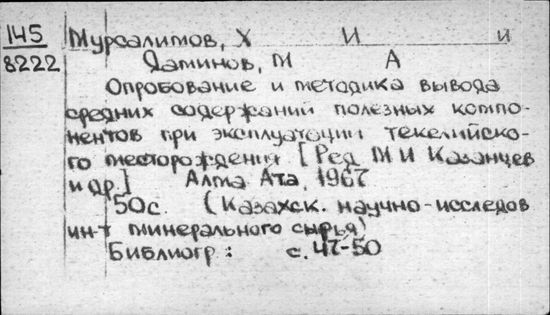 145
8222
Мурсалимов, Х И и
Яминов, М А
Опробование и методика вывода
средних содержаний полезных компо-
нентов при эксплуатации Текелийско-
го месторождения [Ред М И Казанцев
и др.] Алма Ата, 1967
50с. (Казахск. научно-исследов
ин-т минерального сырья)
Библиогр: с. 47-50